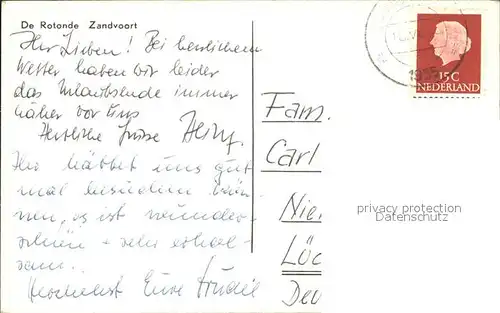 De Rotonde Zandvoort
Ihr Lieben! Bei herrlichem
Wetter haben wir leider
das Urlaubsende immer
näher vor uns
Herzliche Grüsse Heinz.
Ihr hättet uns gut
mal besuchen kön-
nen, es ist wunder-
schön + sehr erhol-
sam.
Herzlichst Eure Trudel
15C
NEDERLAND
Fam.
Carl
Nie
Löc
Deu
privacy protection
Datenschutz